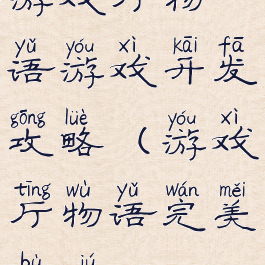 yǔ yóu xì kāi fā
语游戏开发
gōng lüè yóu xì
攻略（游戏
tīng wù yǔ wán měi
厅物语完美